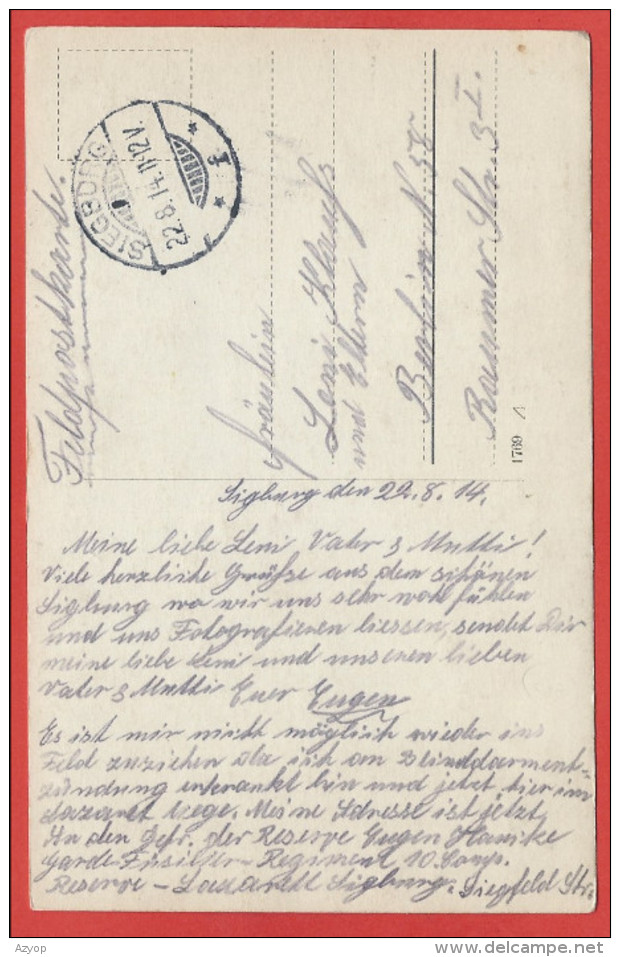 Feldpostkarte.
SIEGBURG
22.8.14. 11-12 V.
Fräulein
Leni
Eltern
Berlin N 58
Raumer Str. 3 I.
1769
Sigburg den 22.8.14.
Meine liebe Leni Vater & Mutti!
Viele herzliche Grüsse aus dem schönen
Sigburg wo wir uns sehr wohl fühlen
und uns Fotografieren liessen, sendet Dir
meine liebe Leni und unseren lieben
Vater & Mutti Euer Eugen
Es ist mir nicht möglich wieder ins
Feld zuziehen da ich an Blinddarment-
zündung erkrankt bin und jetzt hier im
Lazaret liege. Meine Adresse ist jetzt
An den Gefr. der Reserve Eugen
Garde-Füsilier-Regiment 10. Comp.
Reserve-Lazarett Sigburg. Siegfeld Str.
Azyop
delcampe.net